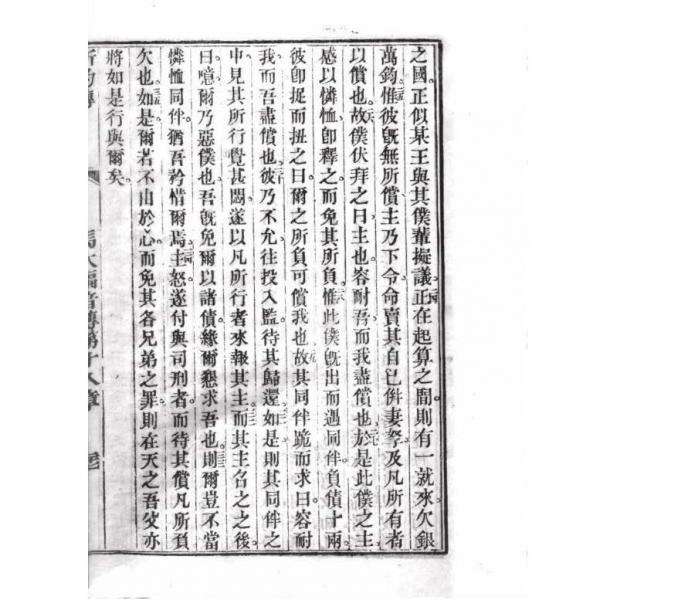 之國正似某王與其僕輩擬議。二四正在起算之間則有一就來欠銀
萬鈞。二五惟彼既無所償主乃下令命賣其自己倂妻孥及凡所有者
以償也。二六故僕伏拜之曰主也容耐吾而我盡償也。二七於是此僕之主
感以憐恤卽釋之而免其所負。二八惟此僕既出而遇同伴負債十兩。
彼卽捉而扭之曰。爾之所負可償我也。二九故其同伴跪而求曰。容耐
我而吾盡償也。三十彼乃不允往投入監。待其歸還。三一如是則其同伴之
中見其所行覺甚悶。遂以凡所行者來報其主。三二而其主名之之後。
曰。噫爾乃惡僕也。吾既免爾以諸債緣爾懇求吾也。三三則爾豈不當
憐恤同伴猶吾矜惜爾焉。三四主怒遂付與司刑者而待其償凡所負
欠也。三五如是爾若不由於心。而免其各兄弟之罪。則在天之吾父亦
將如是行與爾矣。
馬太福音傳第十八章